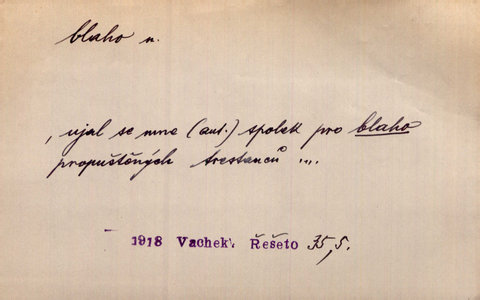 blaho n.
, ujal se mne (aut.) spolek pro blaho
propuštěných trestanců ...
1918 Vachek: Řešeto 35,5.